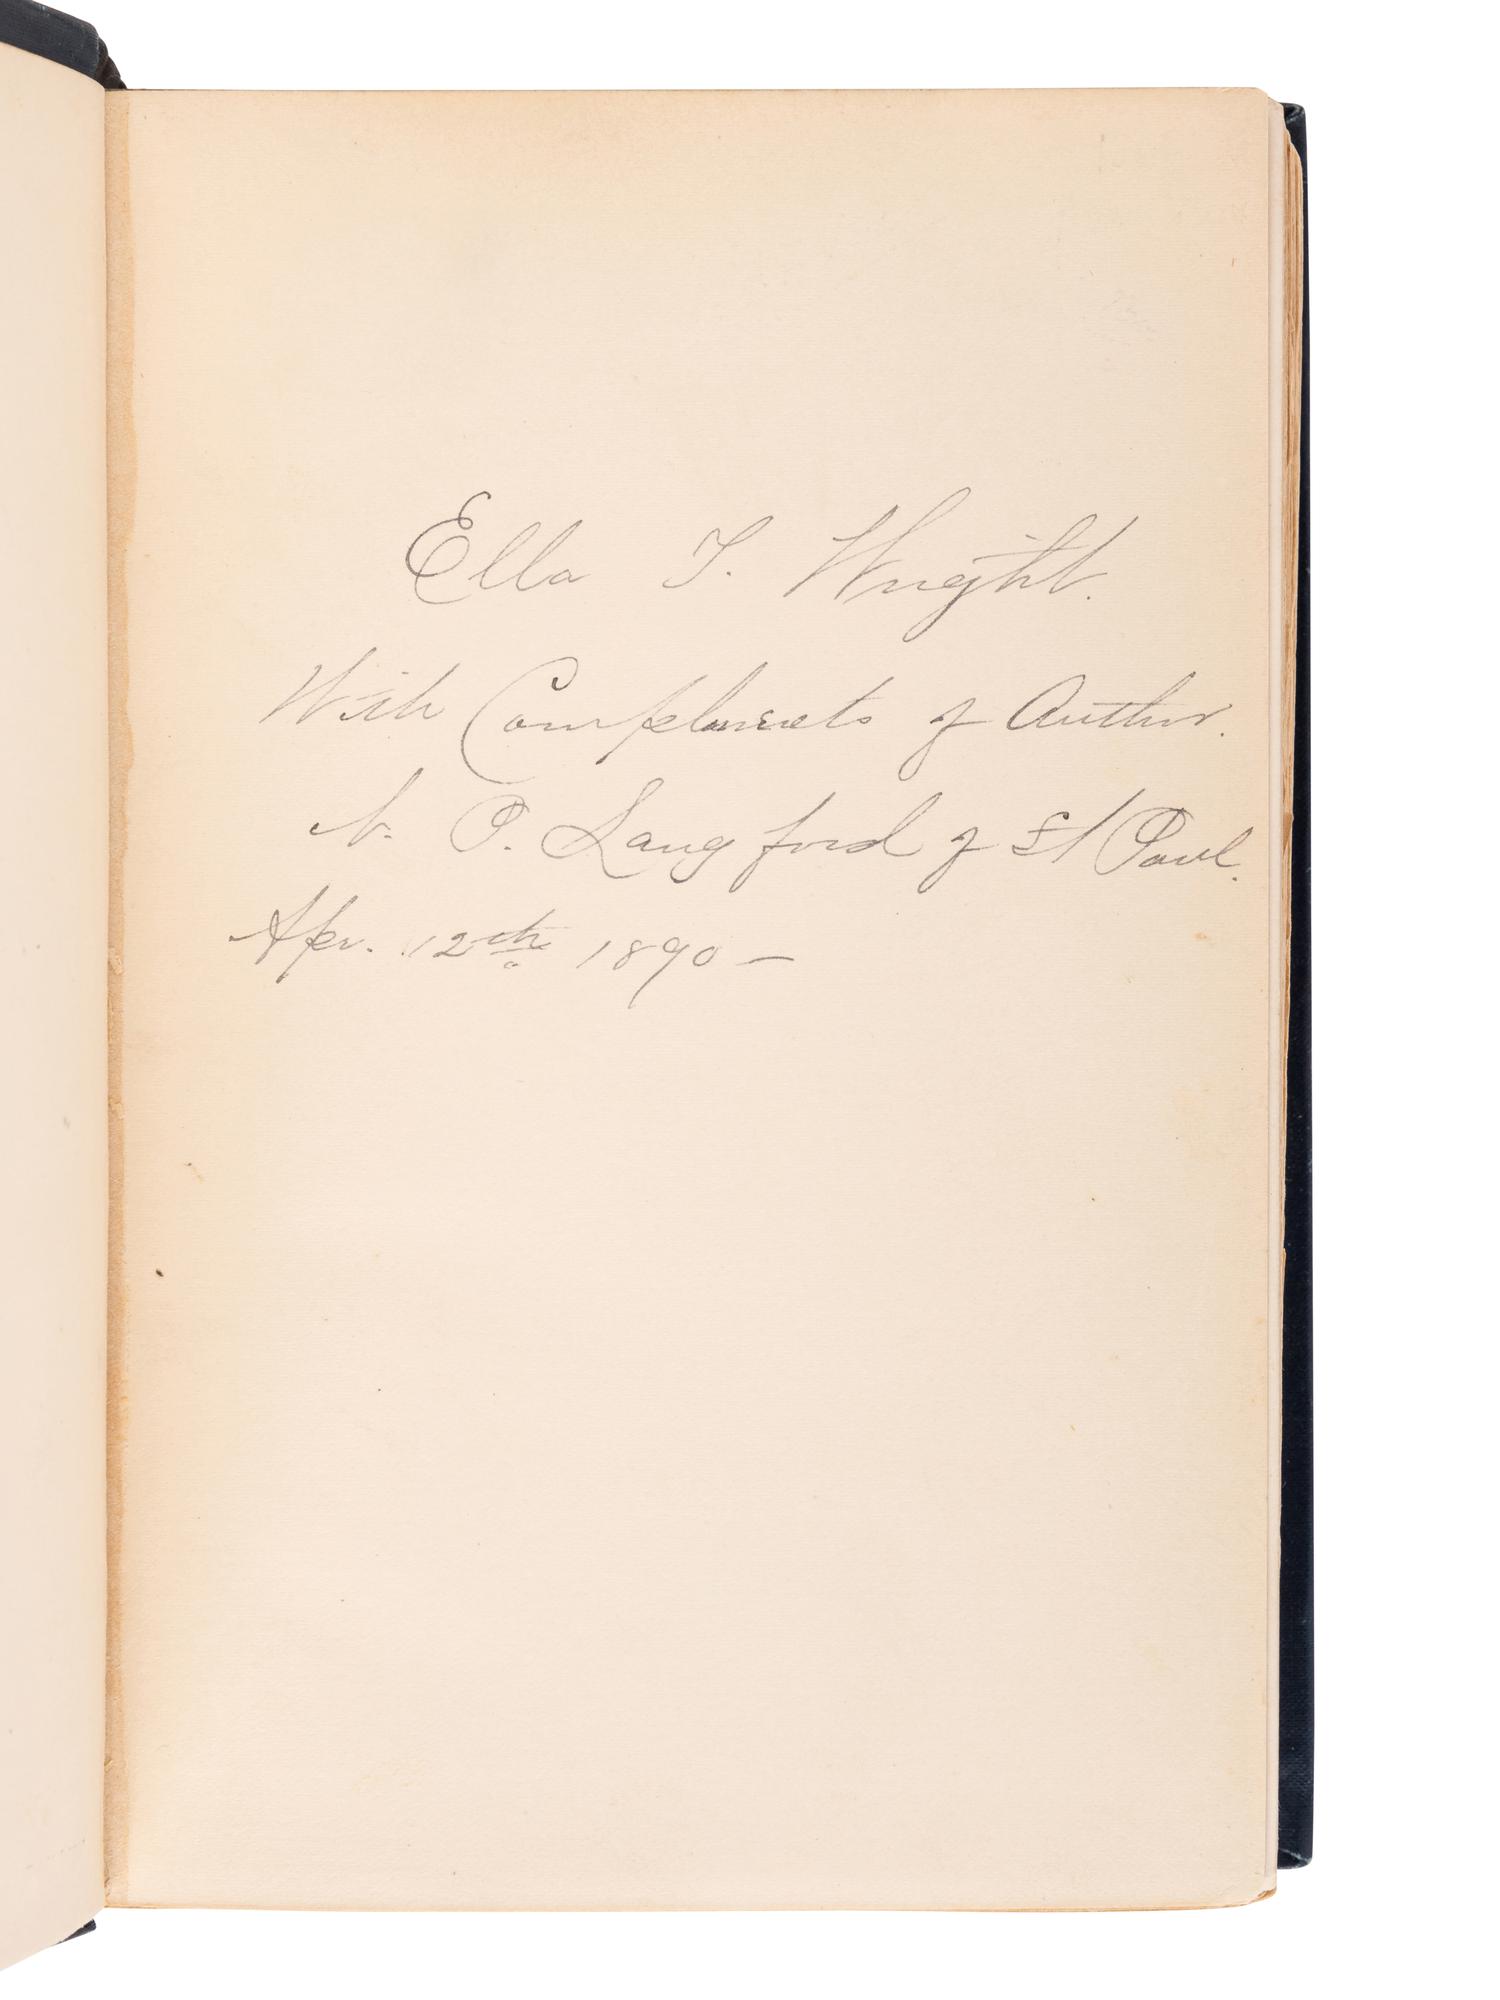 Ella T. Wright.
With Compliments of Author.
N. P. Langford of St Paul.
Apr. 12th 1890 —